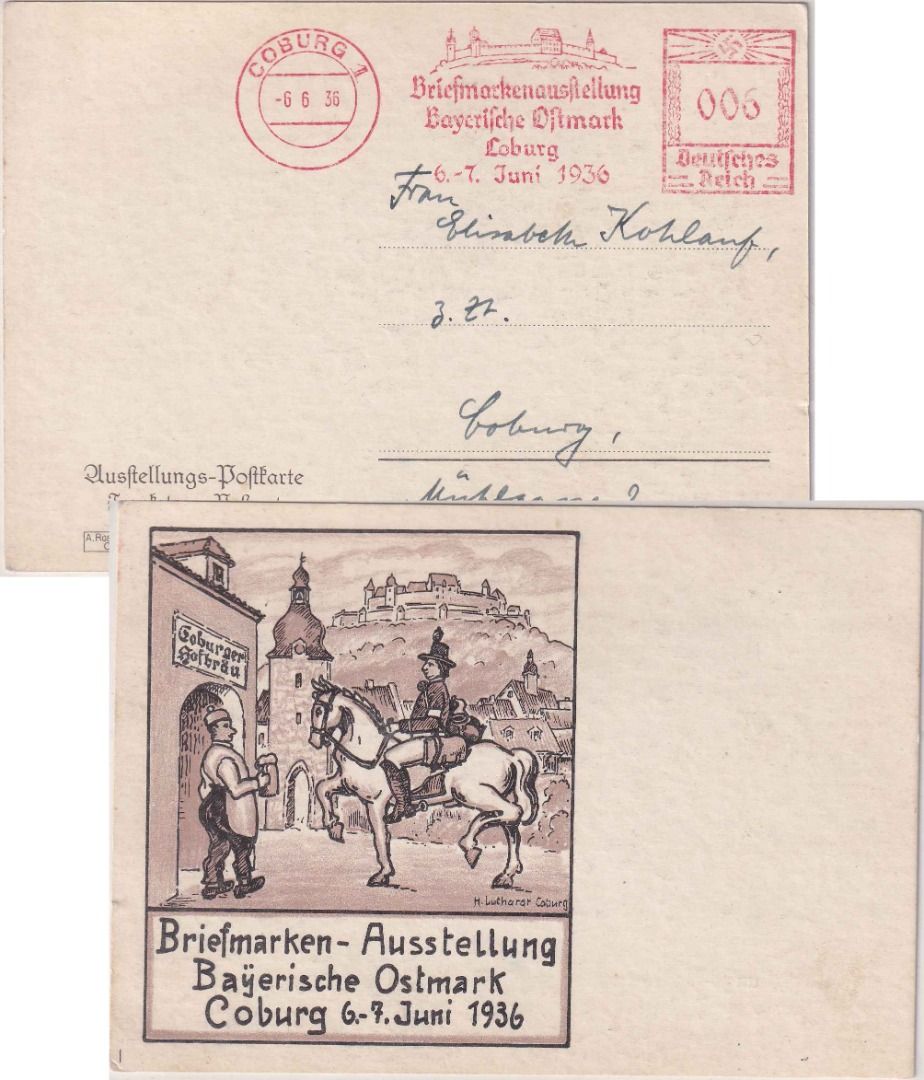 COBURG 1
-6 6 36
Briefmarkenausstellung
Bayerische Ostmark
Coburg
6.-7. Juni 1936
006
Deutsches
Reich
Frau
Elisabeth Kohlauf,
z. Zt.
Coburg,
Ausstellungs-Postkarte
A.Ros
Coburger
Hofbräu
H. Luthardt Coburg
Briefmarken-Ausstellung
Bayerische Ostmark
Coburg 6.-7. Juni 1936